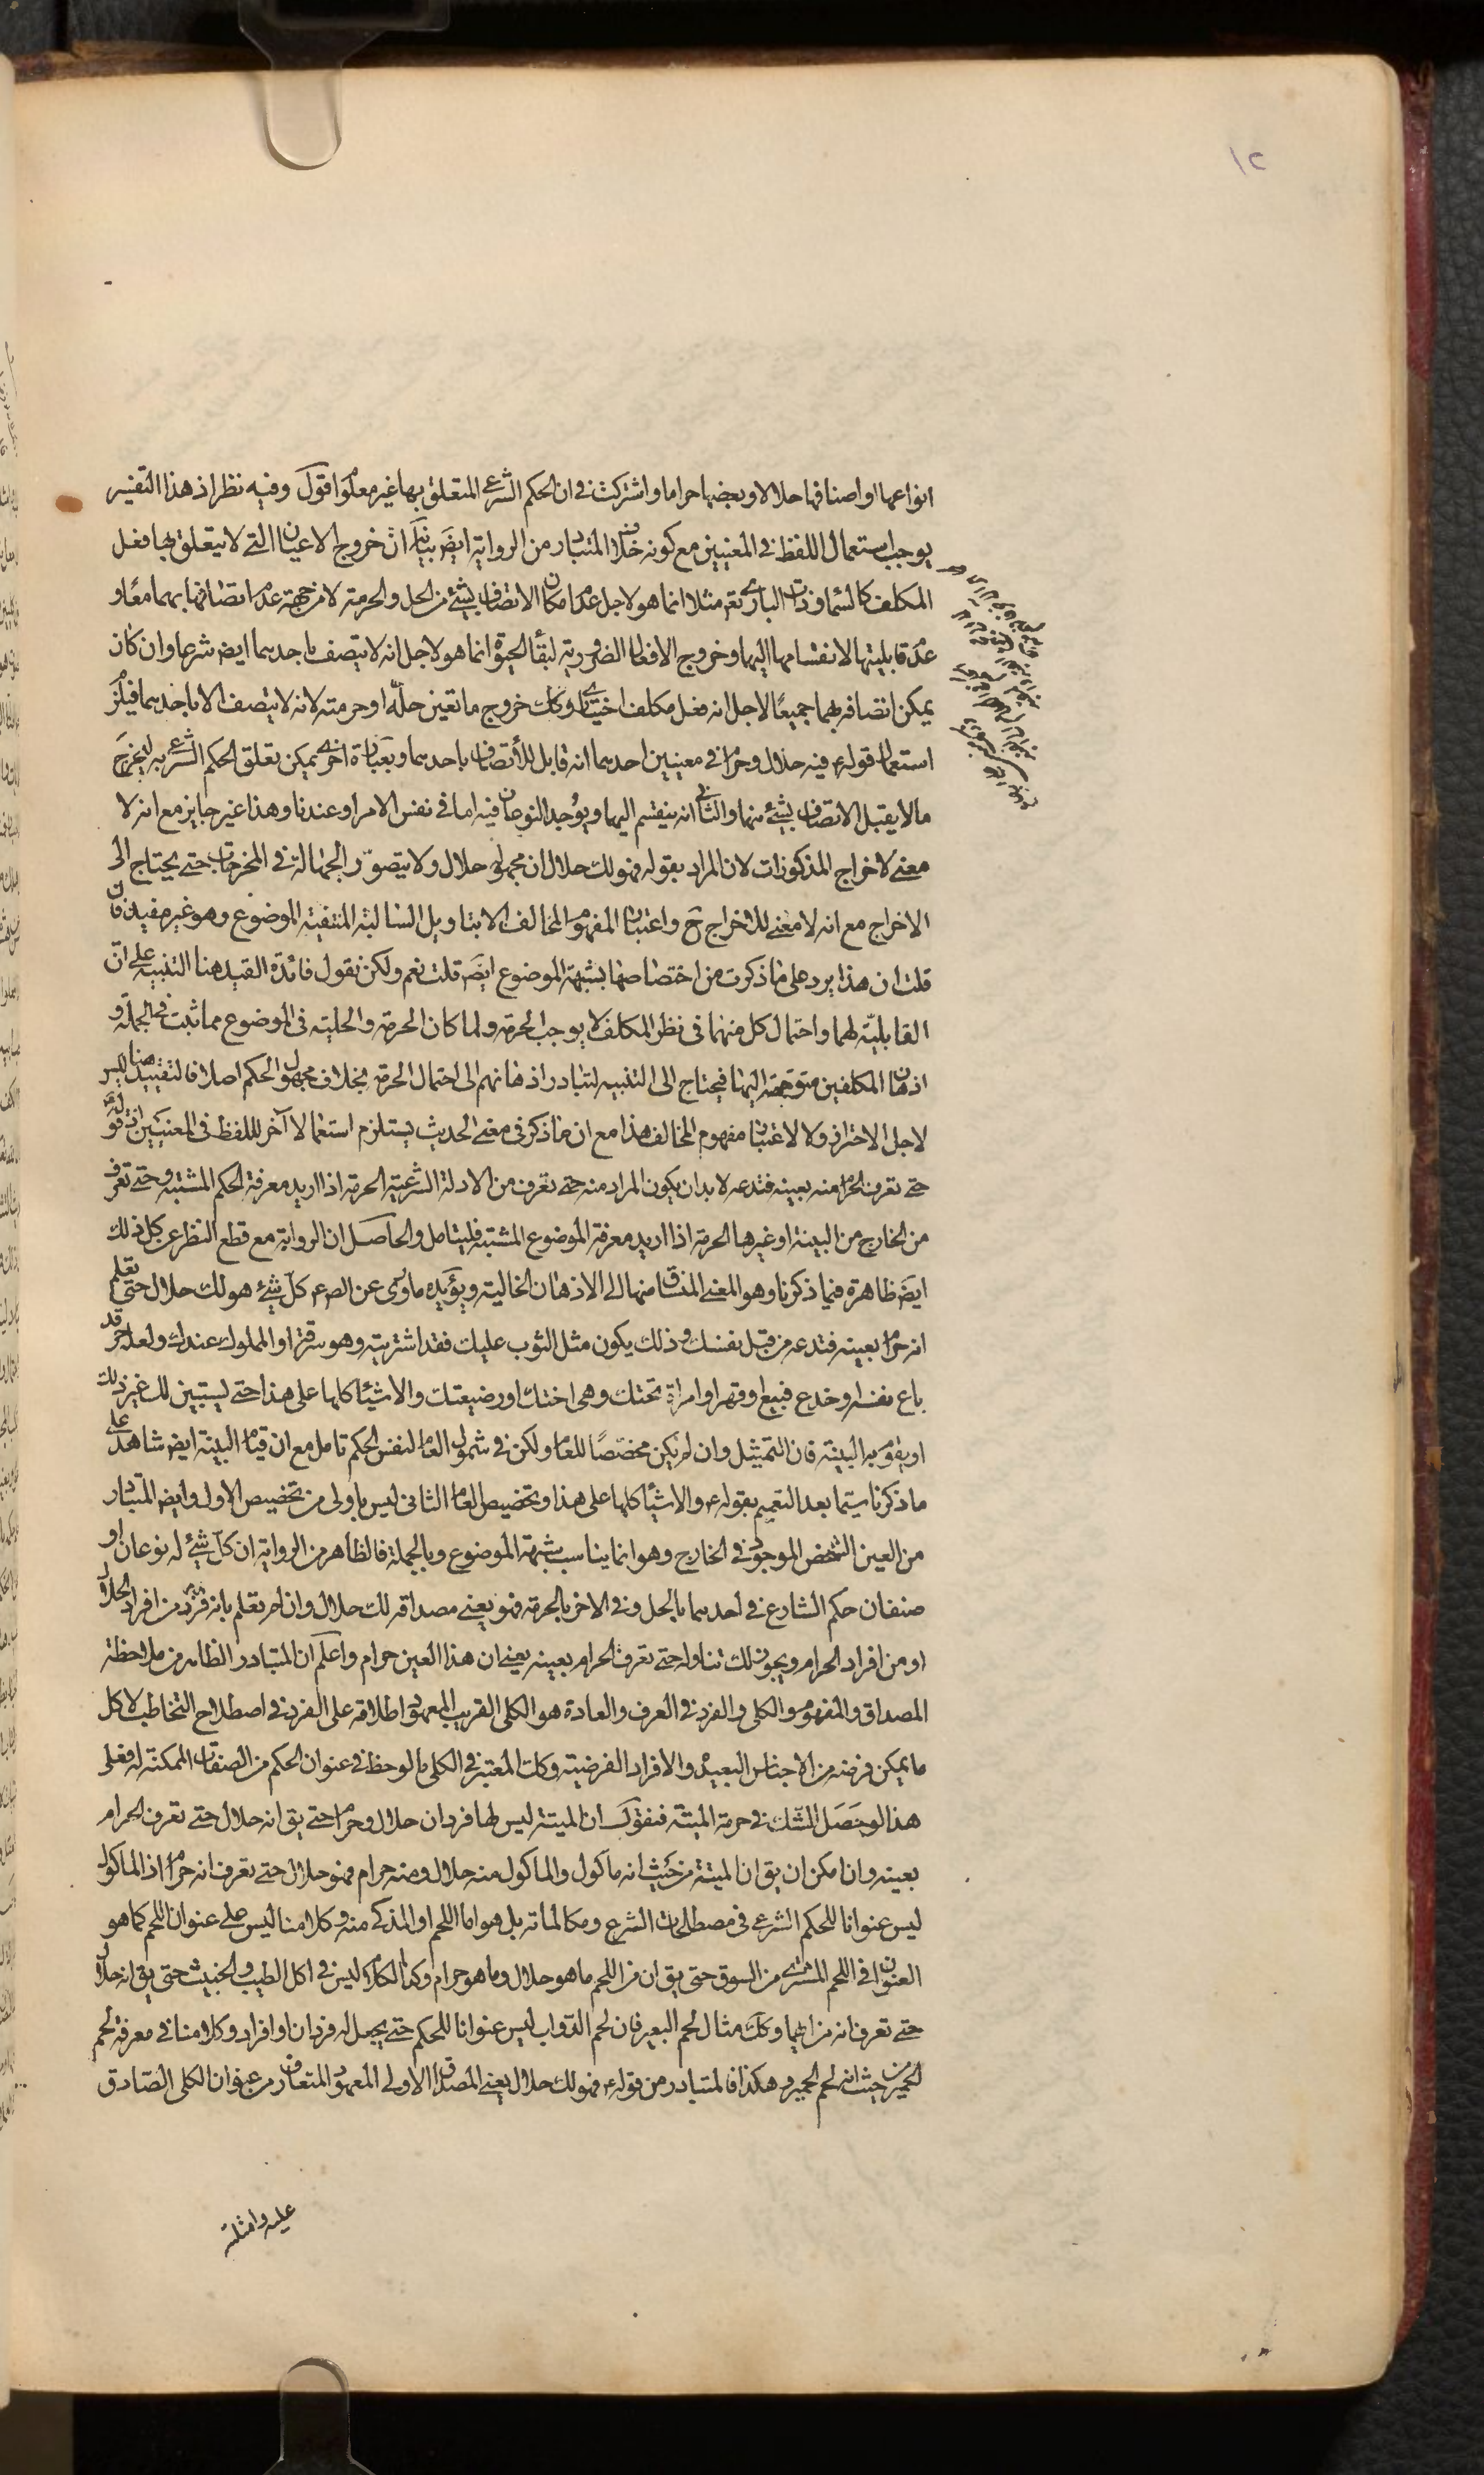 ١٢
انواعها او اصنافها حلالا وبعضها حراما واشتركت في ان الحكم الشرعي المتعلق بها غير معلوم اقول وفيه نظر اذ هذا التفسير
يوجب استعمال اللفظ في المعنيين مع كونه خلاف المتبادر من الرواية ايضَ بيانه ان خروج الاعيان التي لا يتعلق بها فعل
المكلف كالسماء وذات الباري تعَ مثلا انما هو لاجل عدم امكان الاتصاف بشئ من الحل والحرمة لا من جهة عدم اتصافها بهما معًا و
عدم قابليتها لانقسامها اليهما وخروج الافعال الضرورية لبقاء الحيوة انما هو لاجل انه لا يتصف باحدهما ايضَ شرعا وان كان
يمكن اتصافه بهما جميعًا لاجل انه فعل مكلف اختياري وكك خروج ما تعين حلّه او حرمته لانه لا يتصف الا باحدهما فيلزم
استعمال قوله ع فيه حلال وحرام في معنيين احدهما انه قابل للاتصاف باحدهما وبعبارة اخرى يمكن تعلق الحكم الشرعي به ليخرج
ما لا يقبل الاتصاف بشئ منهما والثاني انه ينقسم اليهما ويوجد النوعان فيه اما في نفس الامر او عندنا وهذا غير جايز مع انه لا
معنى لاخراج المذكورات لان المراد بقوله فهو لك حلال ان مجهوله حلال ولا يتصور الجهالة في المخرجات حتى يحتاج الى
الاخراج مع انه لا معنى للاخراج ح واعتبار المفهوم المخالف الا بتاويل السالبة المنتفية الموضوع وهو غير مفيد فان
قلت ان هذا يرد على ما ذكرت من اختصاصها بشبهة الموضوع ايضَ قلت نعم ولكن نقول فائدة القيد هنا التنبيه على ان
القابلية لهما واحتمال كل منهما في نظر المكلف لا يوجب الحرمة ولما كان الحرمة والحلية في الموضوع مما ثبت في الجملة و
اذهان المكلفين متوجهة اليهما فيحتاج الى التنبيه لتبادر اذهانهم الى احتمال الحرمة بخلاف مجهول الحكم اصلا فالتقييد هنا ليس
لاجل الاحتراز ولا لاعتبار مفهوم المخالف هذا مع ان ما ذكر في معنى الحديث يستلزم استعمالا آخر لللفظ في المعنيين اذ قوله ع
حتى تعرف الحرام منه بعينه فتدعه لا بد ان يكون المراد منه حتى تعرف من الادلة الشرعية الحرمة اذا اريد معرفة الحكم المشتبه وحتى تعرف
من الخارج من البينة او غيرها الحرمة اذا اريد معرفة الموضوع المشتبه فليتامل والحاصل ان الرواية مع قطع النظر عن كل ذلك
ايضَ ظاهرة فيما ذكرنا وهو المعنى المنساق منها الى الاذهان الخالية ويؤيده ما روى عن الصم ع كل شئ هو لك حلال حتى تعلم
انه حرام بعينه فتدعه من قبل نفسك وذلك يكون مثل الثوب عليك فقد اشتريته وهو سرقة او المملوك عندك ولعله حر قد
باع نفسه او خدع فبيع او قهر او امراة تحتك وهي اختك او رضيعتك والاشياء كلها على هذا حتى يستبين لك غير ذلك
او يقوم به البينة فان التمثيل وان لم يكن مخصّصًا للعام ولكن في شمول العام لنفس الحكم تامل مع ان قيام البينة ايضَ شاهد على
ما ذكرنا سيما بعد التعميم بقوله ع والاشياء كلها على هذا وتخصيص العام الثاني ليس باولى من تخصيص الاول وايضَ المتبادر
من العين الشخص الموجود في الخارج وهو انما يناسب شبهة الموضوع وبالجملة فالظاهر من الرواية ان كل شئ له نوعان او
صنفان حكم الشارع في احدهما بالحل وفي الاخر بالحرمة فهو يعني مصداقه لك حلال وان لم تعلم بانه فرد من افراد الحلال
او من افراد الحرام ويجوز لك تناوله حتى تعرف الحرام بعينه يعني ان هذا العين حرام واعلم ان المتبادر الظاهر من ملاحظة
المصداق والمفهوم والكلي والفرد في العرف والعادة هو الكلي القريب المعهود اطلاقه على الفرد في اصطلاح التخاطب لا كل
ما يمكن فرضه من الاجناس البعيدة والافراد الفرضية وكك المعتبر في الكلي ما لوحظ في عنوان الحكم من الصفات الممكنة له فعلى
هذا لو حصل الشك في حرمة الميتة فنقول ان الميتة ليس لها فردان حلال وحرام حتى يق انه حلال حتى تعرف الحرام
بعينه وان امكن ان يق ان الميتة من حيث انه ماكول والماكول منه حلال ومنه حرام فهو حلال حتى تعرف انه حرام اذ الماكول
ليس عنوانا للحكم الشرعي في مصطلحات الشرع ومكالماته بل هو اما اللحم او المذكى منه وكلامنا ليس على عنوان اللحم كما هو
العنوان في اللحم المشترى من السوق حتى يق ان من اللحم ما هو حلال وما هو حرام وكذا الكلام ليس في اكل الطيب والخبيث حتى يق انه حلال
حتى تعرف انه من ايهما وكك مثال لحم البعير فان لحم الدواب ليس عنوانا للحكم حتى يجعل له فردان او افراد وكلامنا في معرفة لحم
الحمير من حيث انه لحم الحمير وهكذا فالمتبادر من قوله ع فهو لك حلال يعني المصداق الاولى المعهود المتعارف من عنوان الكلي الصادق
عليه وامثلته